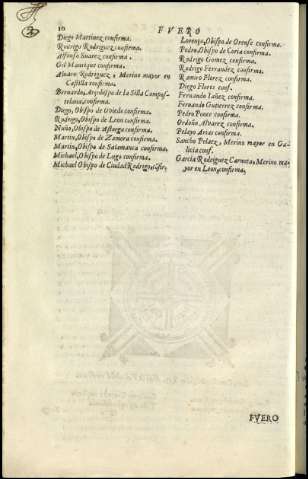 10
FVERO
Diego Martinez confirma.
Rodrigo Rodriguez confirma.
Alfonso Suarez confirma.
Gil Manrique confirma.
Alvaro Rodriguez, Merino mayor en
Castilla confirma.
Bernardo, Arçobispo de la Silla Compos-
telana confirma.
Diego, Obispo de Oviedo confirma.
Rodrigo, Obispo de Leon confirma.
Nuño, Obispo de Astorga confirma.
Martin, Obispo de Zamora confirma.
Martin, Obispo de Salamanca confirma.
Michael, Obispo de Lugo confirma.
Michael Obispo de Ciudad Rodrigo, cōfir.
Lorenço, Obispo de Orense confirma.
Pedro, Obispo de Coria confirma.
Rodrigo Gomez confirma.
Rodrigo Fernandez confirma.
Ramiro Florez confirma.
Diego Florez conf.
Fernando Iañez confirma.
Fernando Gutierrez confirma.
Pedro Ponce confirma.
Ordoño Alvarez confirma.
Pelayo Arias confirma.
Sancho Pelaez, Merino mayor en Ga-
licia conf.
Garcia Rodriguez Carnota, Merino ma-
yor en Leon, confirma.
FVERO